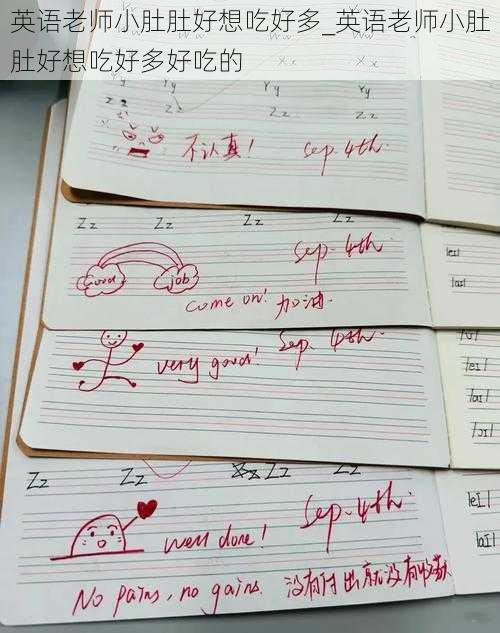 英语老师小肚肚好想吃好多_英语老师小肚
肚好想吃好多好吃的
Yy Yy Yy
Zz Zz Zz
不认真! Sep. 4th.
Zz Zz Zz Zz
Sep. 4th.
Good job
come on! 加油.
/eɪ/
/aɪ/
very good! Sep. 4th.
/eɪ/
/aɪ/
/ɔɪ/
Zz Zz Zz
Sep. 4th.
well done!
/eɪ/
/aɪ/
No pains, no gains. 没有付出就没有收获